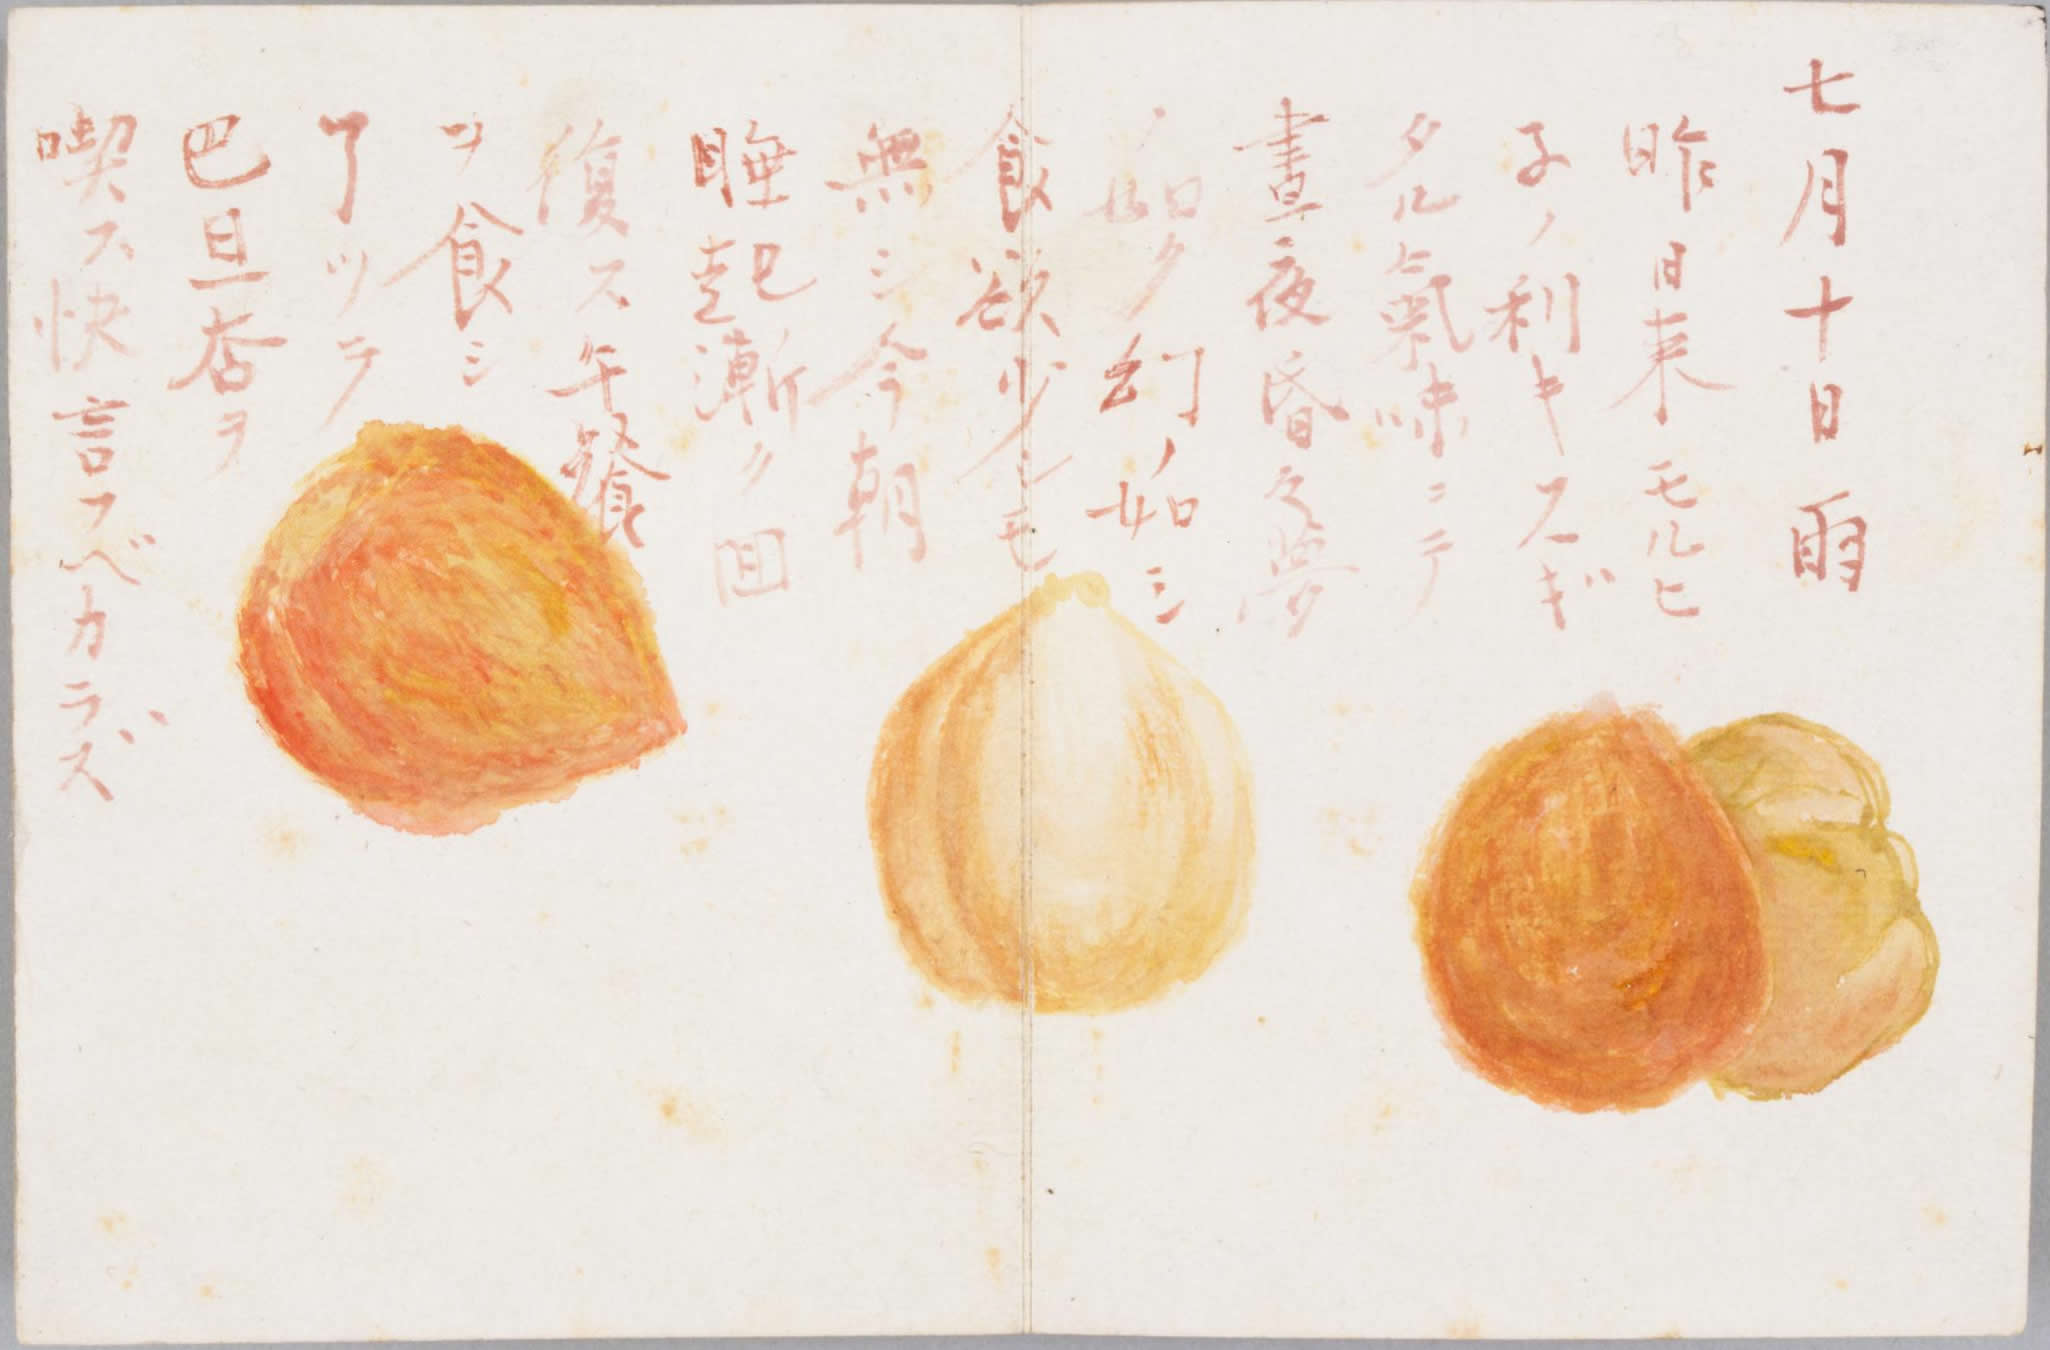 七月十日 雨
昨日来モルヒ
子ノ利キスギ
タル氣味ニテ
晝夜昏々夢
ノ如ク幻ノ如シ
食欲少シモ
無シ今朝
睡起漸ク回
復ス午餐
ヲ食シ
了ツテ
巴旦杏ヲ
喫ス快言フベカラズ